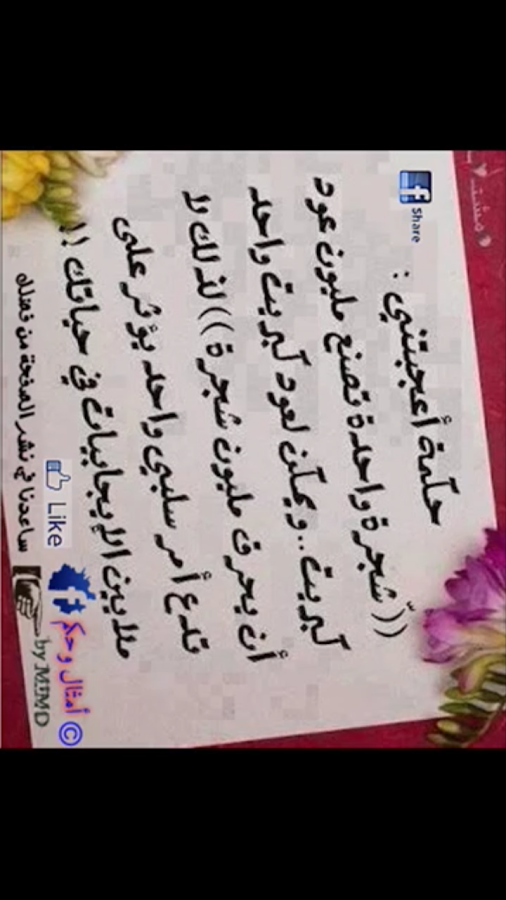 Share
حكمة أعجبتني :
((شجرة واحدة تصنع مليون عود
كبريت .. ويمكن لعود كبريت واحد
أن يحرق مليون شجرة )) لذلك لا
تدع أمر سلبي واحد يؤثر على
ملايين الإيجابيات في حياتك !!
Like
ساعدنا في نشر الصفحة من فضلك
© أمثال وحكم
by MJMD